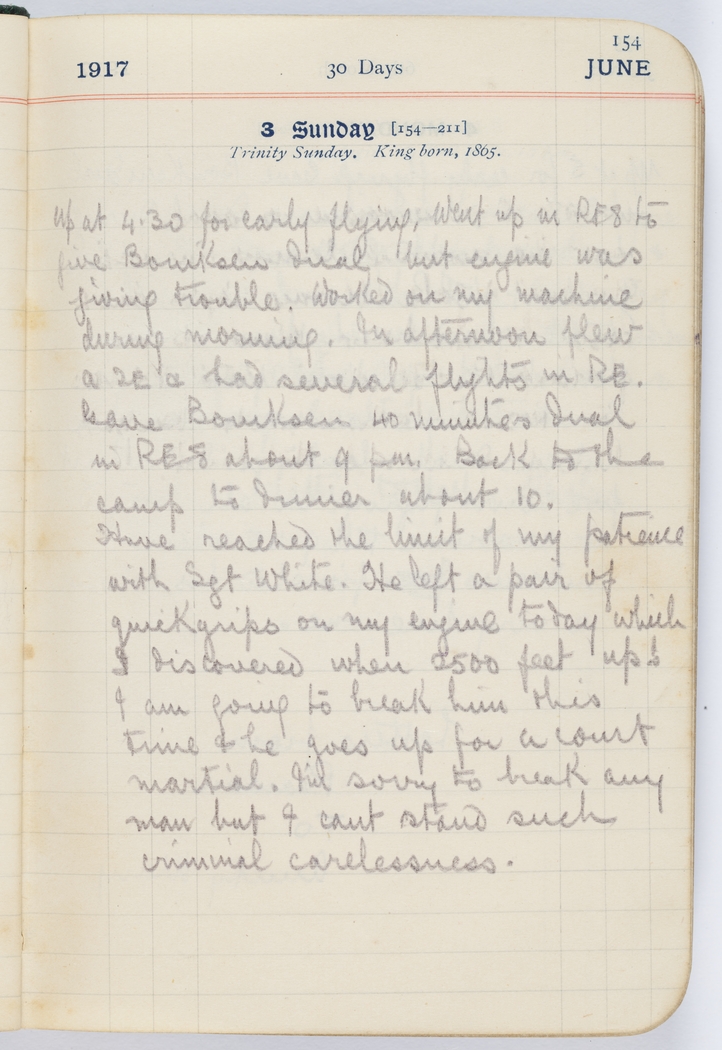 154
1917 30 Days JUNE
3 Sunday [154—211]
Trinity Sunday. King born, 1865.
Up at 4.30 for early flying. Went up in RE8 to
give Bourksen dual but engine was
giving trouble. Worked on my machine
during morning. In afternoon flew
a 2E & had several flights in RE.
Gave Bourksen 40 minutes dual
in RE8 about 9 pm. Back to the
camp to dinner about 10.
Have reached the limit of my patience
with Sgt White. He left a pair of
quickgrips on my engine today which
I discovered when 2500 feet up!
I am going to break him this
time & he goes up for a court
martial. I'm sorry to break any
man but I cant stand such
criminal carelessness.